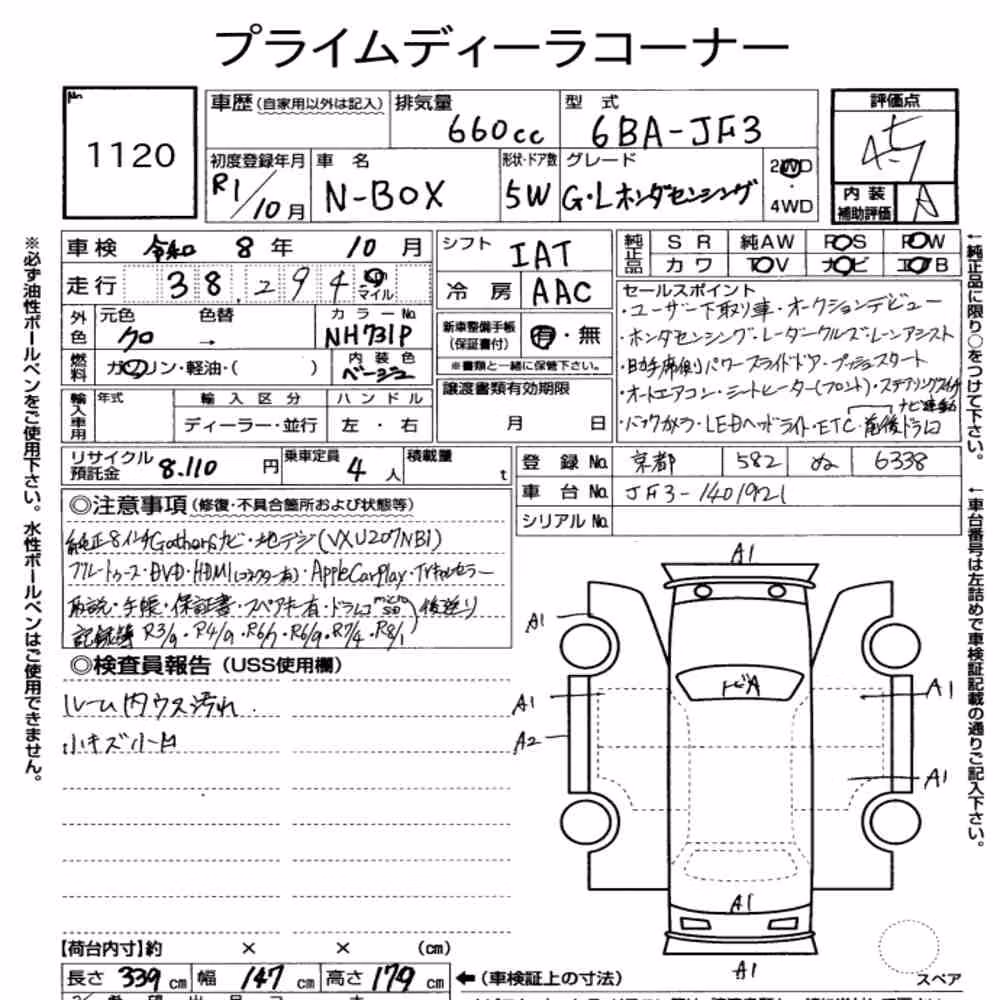 プライムディーラコーナー
No.
1120
車歴(自家用以外は記入)
排気量
660cc
型式
6BA-JF3
評価点
初度登録年月
R1/10月
車名
N-BOX
形状・ドア数
5W
グレード
G・Lホンダセンシング
2WD
・
4WD
内装
補助評価
A
車検 令和 8年 10月
走行 38,294 km マイル
シフト
IAT
冷房
AAC
純正品
SR 純AW PS PW
カワ TV ナビ エアB
外色
元色 色替 カラーNo.
クロ → NH731P
燃料
ガソリン・軽油・( )
内装色
ベージュ
新車整備手帳
(保証書付)
有・無
※書類と一緒に保管下さい。
セールスポイント
・ユーザー下取り車・オークションデビュー
・ホンダセンシング・レーダークルーズ・レーンアシスト
・助手席側パワースライドドア・プッシュスタート
・オートエアコン・シートヒーター(フロント)・ステアリングスイッチ
ナビ連動
・バックカメラ・LEDヘッドライト・ETC・前後ドラレコ
輸入車用
年式
輸入区分
ハンドル
ディーラー・並行
左・右
譲渡書類有効期限
月 日
リサイクル
預託金
8.110円
乗車定員
4人
積載量
t
登録No. 京都 582 ぬ 6338
車台No. JF3-1401921
シリアルNo.
◎注意事項(修復・不具合箇所および状態等)
純正8インチGathersナビ・地デジ(VXU207NBi)
ブルートゥース・DVD・HDMI(コネクター有)・AppleCarPlay・TVキャンセラー
取説・手帳・保証書・スペアキー有・ドラレコmicroSD後送り
記録簿 R3/9・R4/9・R6/7・R6/9・R7/4・R8/1
◎検査員報告(USS使用欄)
ルーム内ウス汚れ
小キズ小凹
A1
A1
A1
A2
トビA
A1
A1
A1
A1
【荷台内寸】約 × × (cm)
長さ 339cm 幅 147cm 高さ 179cm
←(車検証上の寸法)
スペア
※必ず油性ボールペンをご使用下さい。水性ボールペンはご使用できません。
←純正品に限り○をつけて下さい。
←車台番号は左詰めで車検証記載の通りご記入下さい。